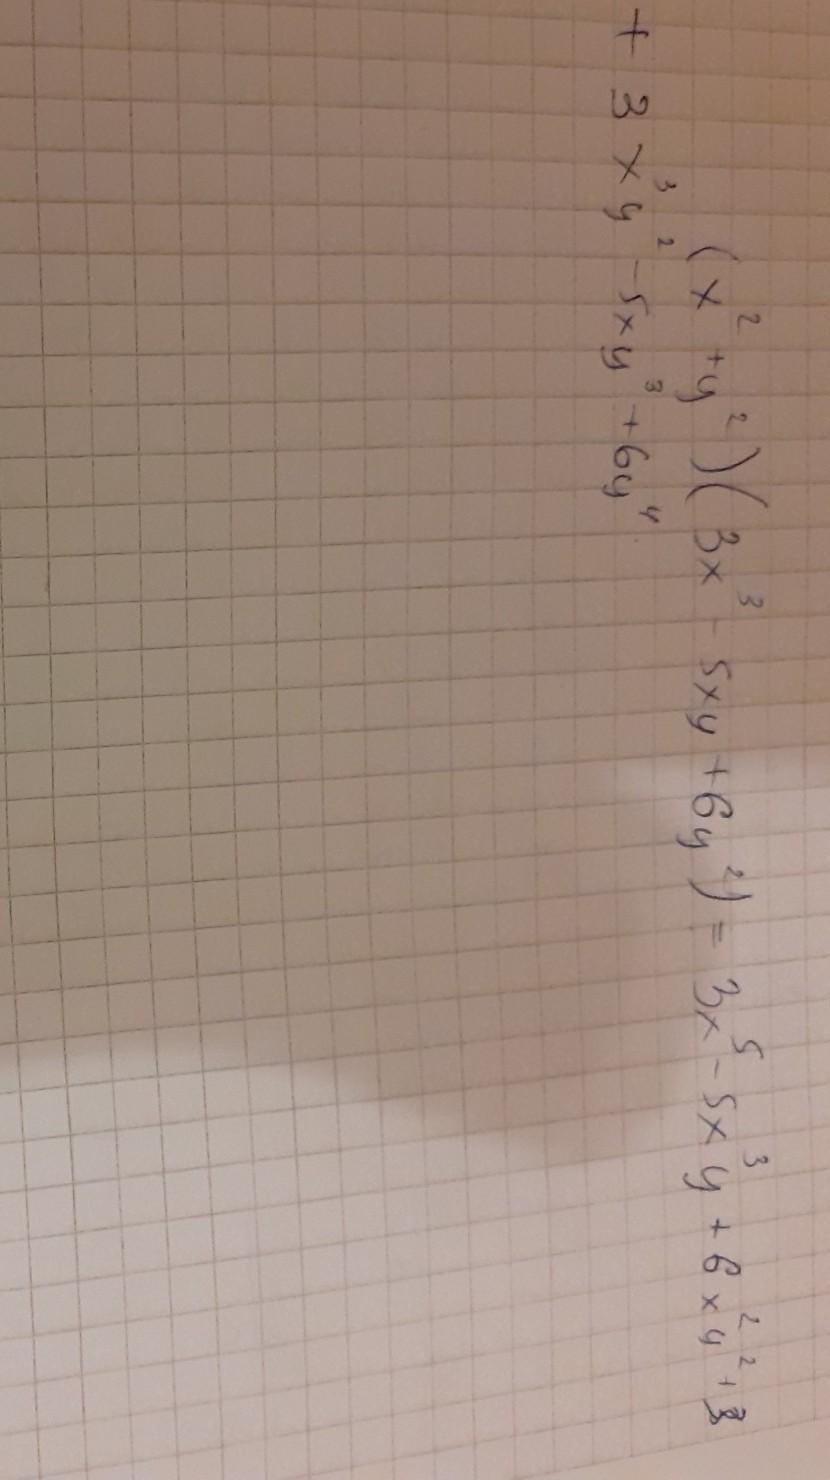 (x² + y²)(3x³ - 5xy + 6y²) = 3x⁵ - 5x³y + 6x²y² +
+ 3x³y² - 5xy³ + 6y⁴